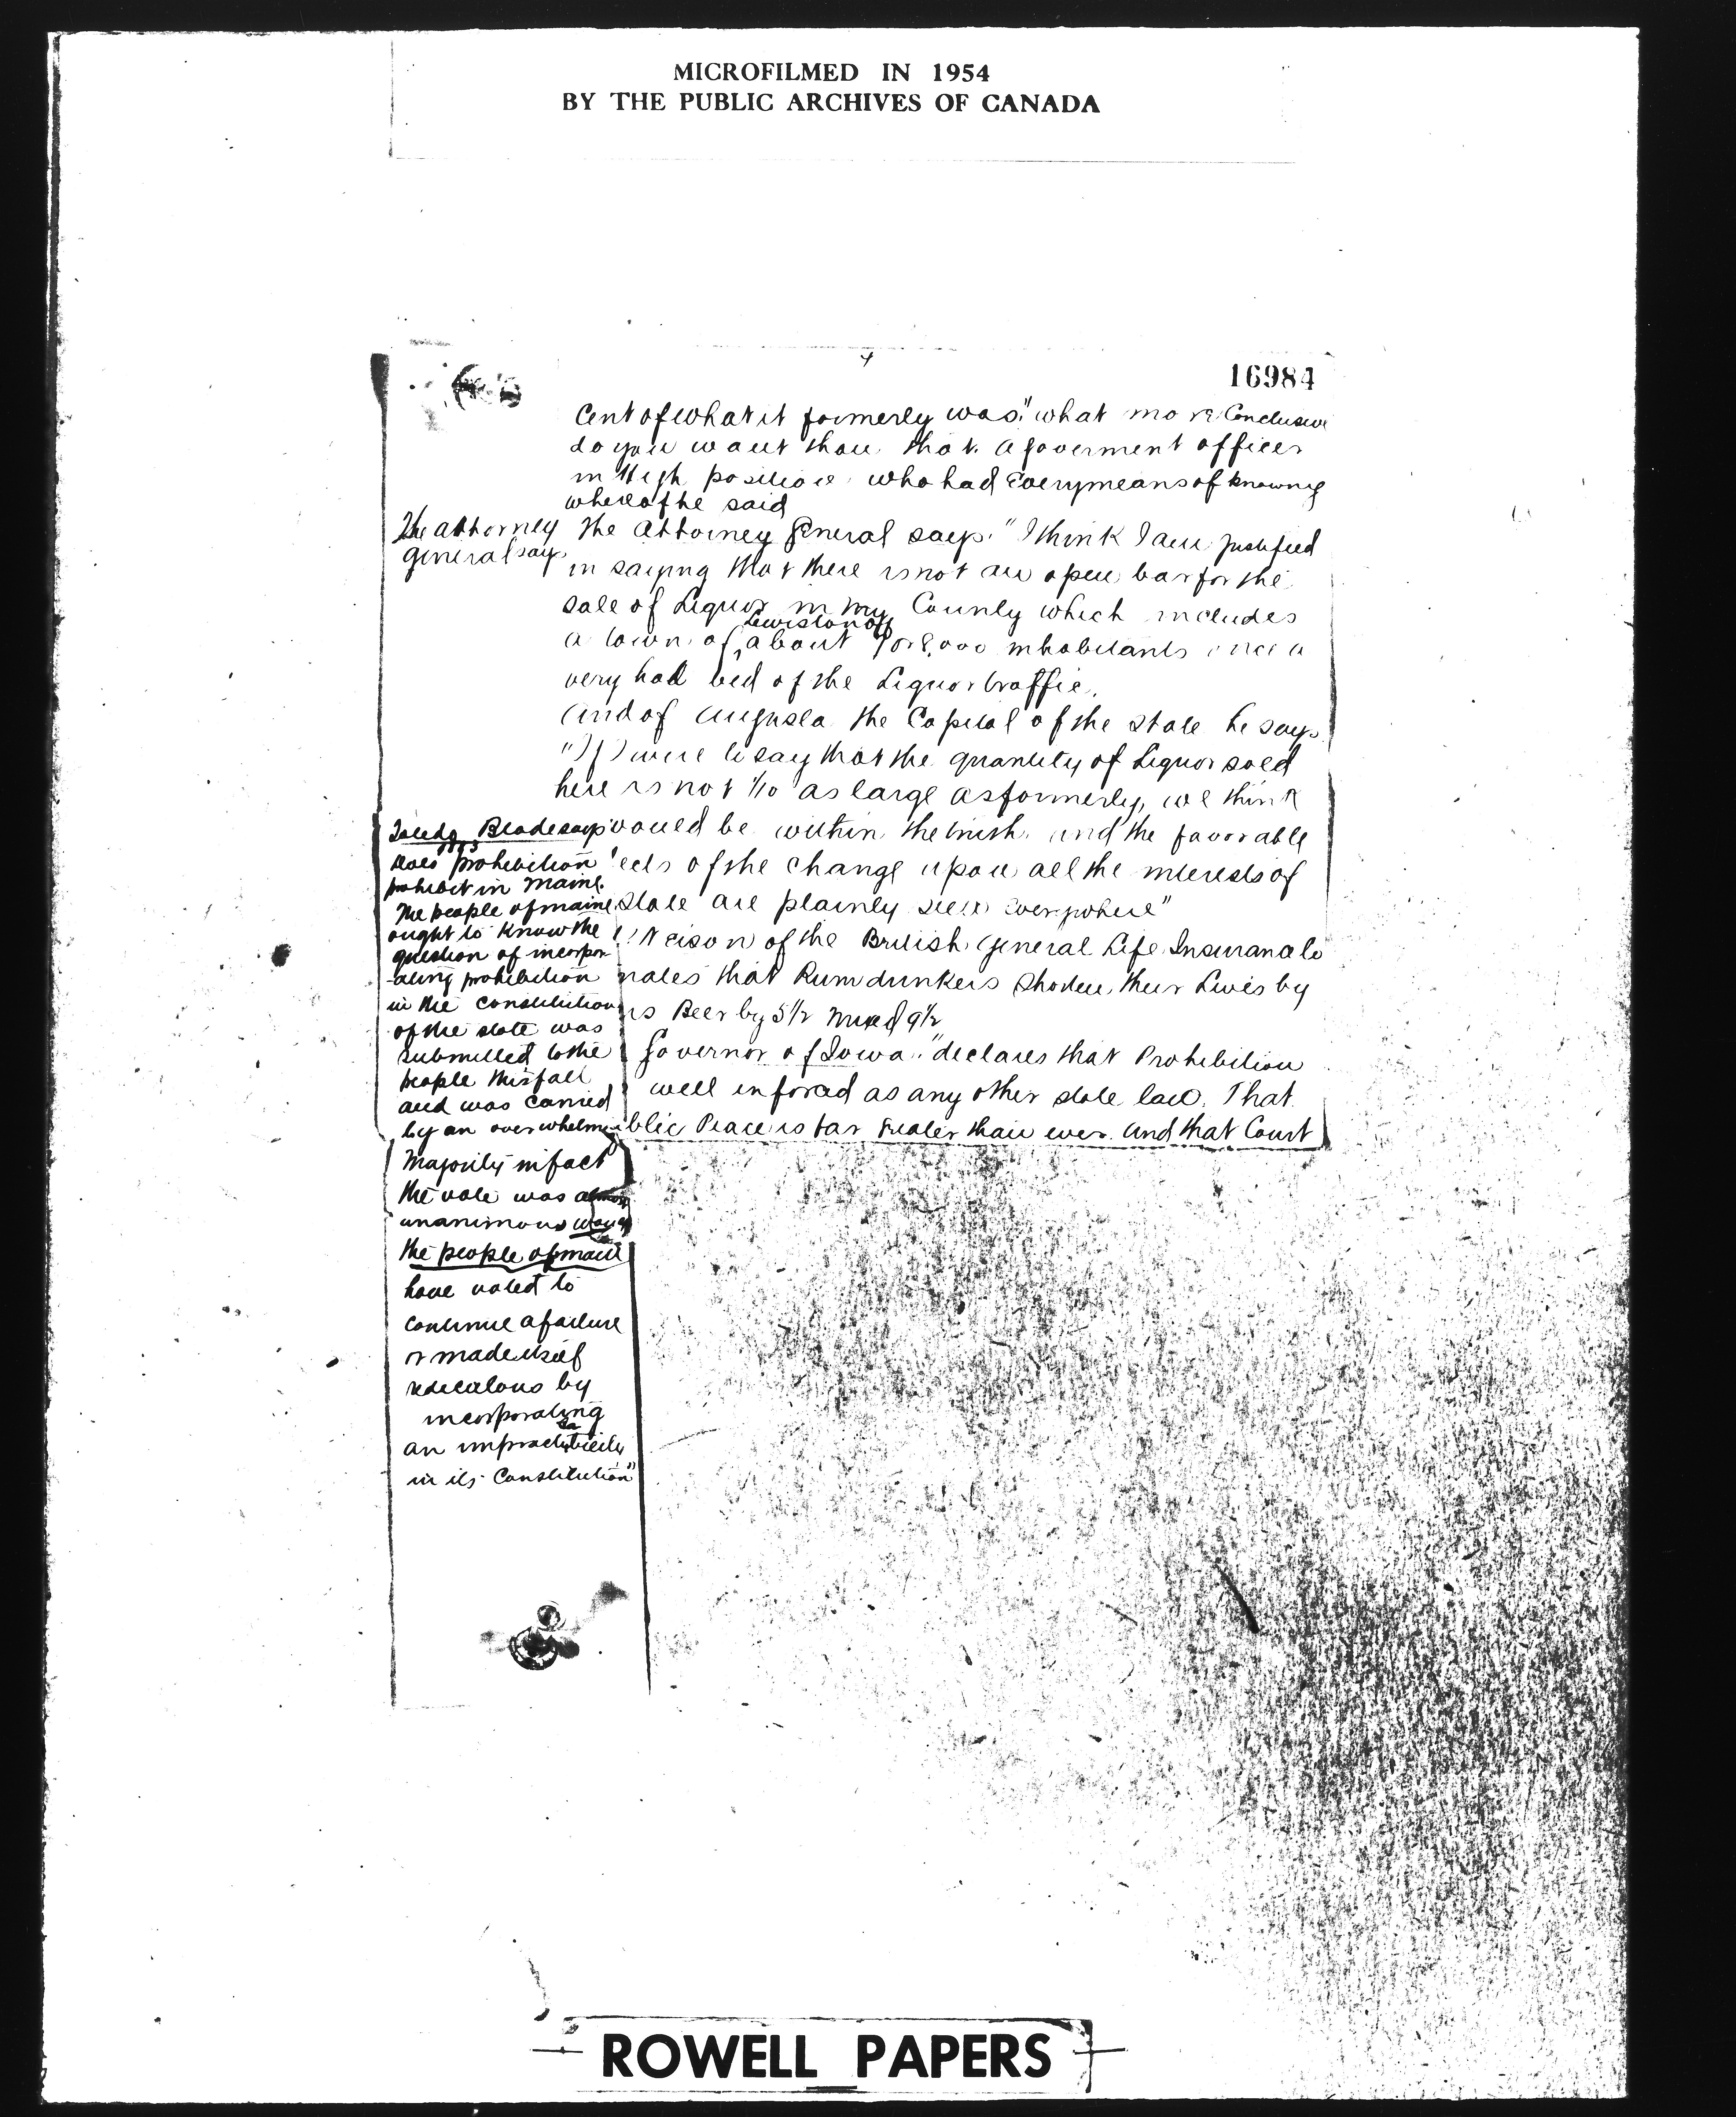 MICROFILMED IN 1954
BY THE PUBLIC ARCHIVES OF CANADA
4
16984
Cent of what it formerly was" what more Conclusive
do you want than that. a Goverment officer
in High position who had Every means of knowing
whereof he said
The attorney
general say
The Attorney General says. "I think I am justified
in saying that there is not an open bar for the
sale of Liquor in my County which includes
a town of Lewiston of about 8,000 inhabitants once a
very hot bed of the Liquor traffic.
And of Augusta the Capital of the state he says
"If I were to say that the quantity of Liquor sold
here is not 1/10 as large as formerly, we think
would be within the truth. and the favorable
ects of the change upon all the interests of
State are plainly seen Everywhere"
Neison of the British General Life Insurance Co
nates that Rum drinkers Shorten their Lives by
rs Beer by 5 1/2 Mixed 9 1/2
Governor of Iowa. "declares that Prohibition
well inforced as any other state law. That
blic Peace is far better than ever. and that Court
Toledo Blade says
does prohibition
prohibit in Maine.
The people of maine
ought to know the
question of incorpor
-ating prohibition
in the constitution
of the state was
submitted to the
people this fall
and was carried
by an overwhelming
Majority in fact
the vote was almost
unanimous
the people of maine
have voted to
continue a failure
or made itself
rediculous by
incorporating
an impracticability
in its Constitution"
ROWELL PAPERS